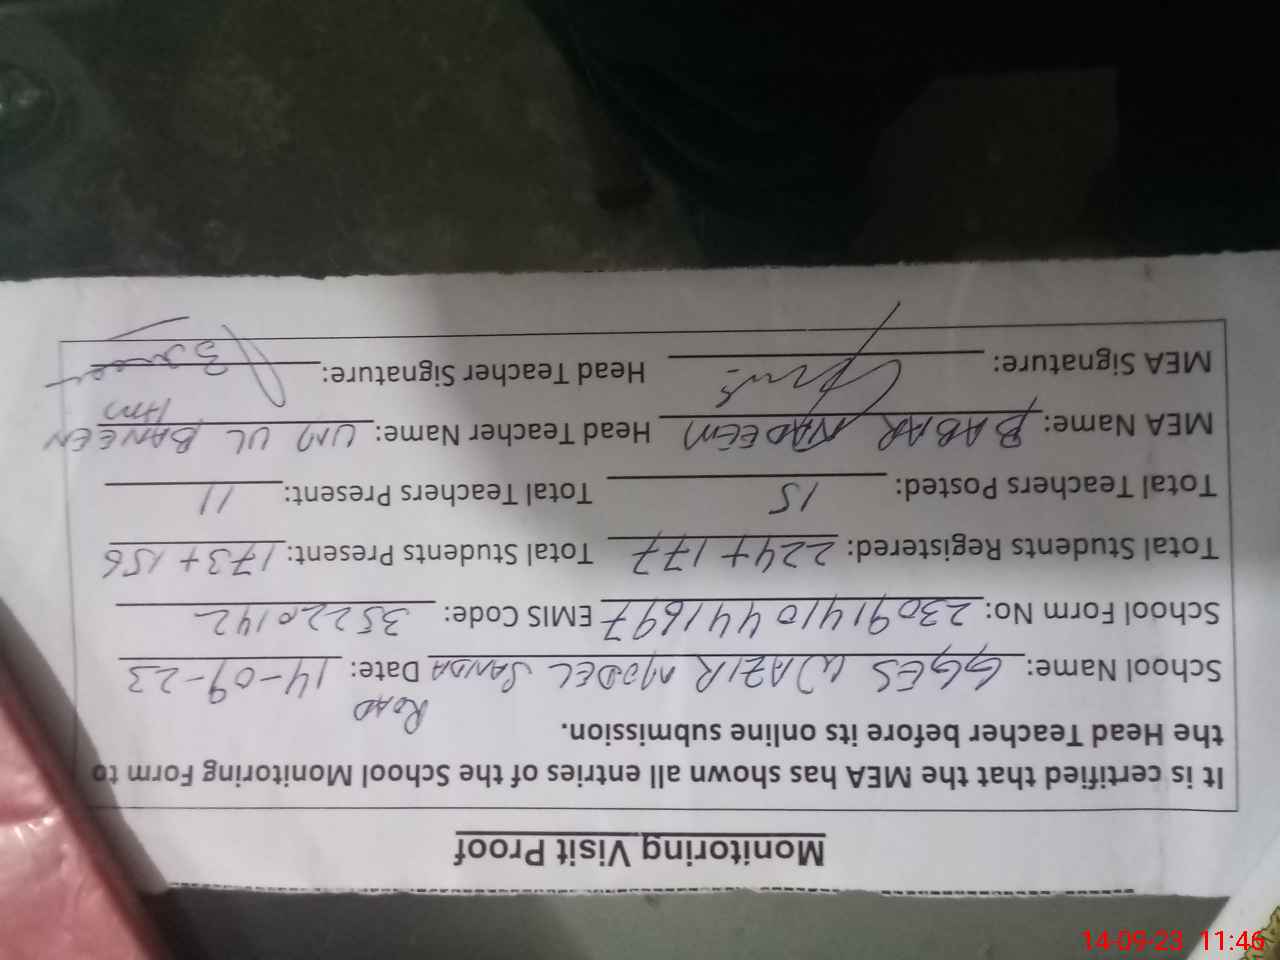 Monitoring Visit Proof
It is certified that the MEA has shown all entries of the School Monitoring Form to
the Head Teacher before its online submission.
School Name: GGES WAZIR MODEL SANDA ROAD Date: 14-09-23
School Form No: 2309141044 1697 EMIS Code: 35220142
Total Students Registered: 224+177 Total Students Present: 173+156
Total Teachers Posted: 15 Total Teachers Present: 11
MEA Name: BABAR NADEEM Head Teacher Name: UM UL BANEEN HM
MEA Signature: Head Teacher Signature:
14-09-23 11:46